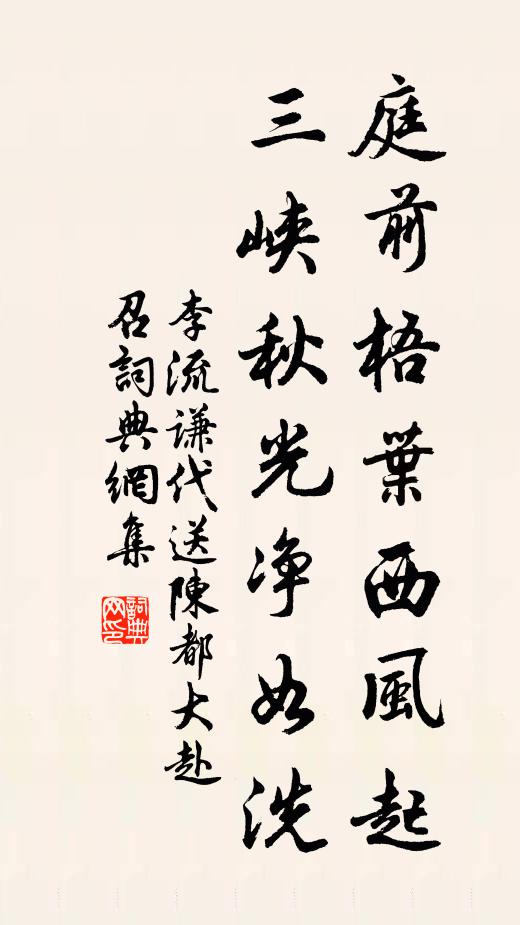 庭前梧葉西風起
三峽秋光净如洗
李流謙代送陳都大赴
召詞典網集
詞典
网印